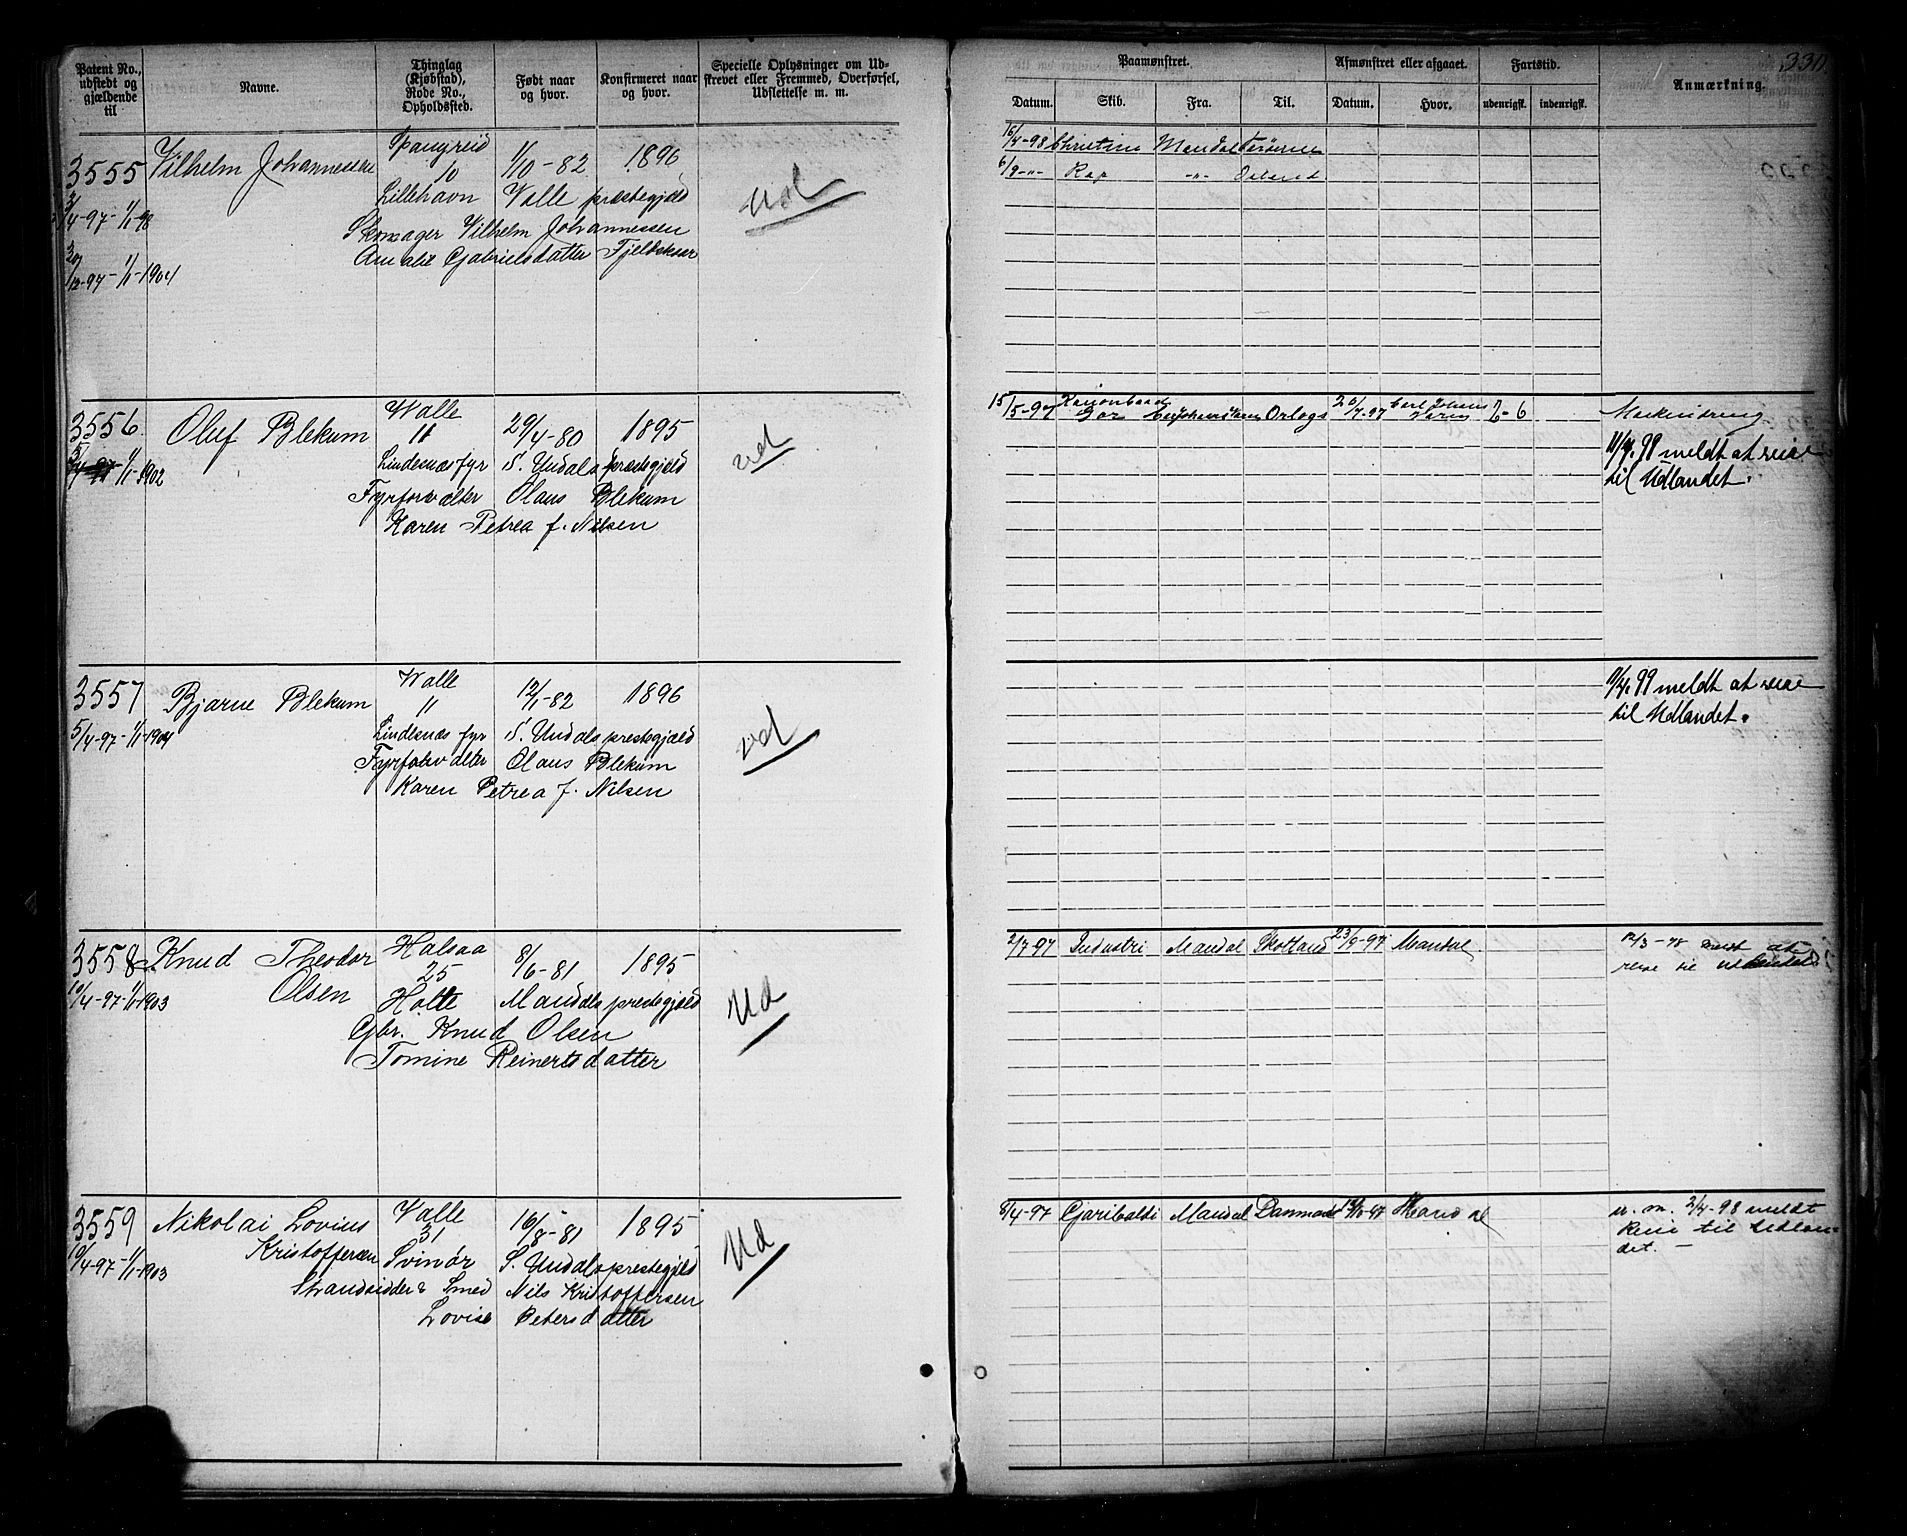 330
Patent No., udstedt og gjældende til
Navne.
Thinglag (Kjøbstad), Rode No., Opholdssted.
Født naar og hvor.
Konfirmeret naar og hvor.
Specielle Oplysninger om Udskrevet eller Fremmed, Overførsel, Udslettelse m. m.
Paamønstret.
Afmønstret eller afgaaet.
Fartstid.
Anmærkning.
Datum. Skib. Fra. Til. Datum. Hvor. udenrigsk. indenrigsk.
3555 Vilhelm Johannessen Spangreid 1/10-82 1896
10
Lillehavn Valle præstegjeld
Ud
3/4-97-1/1-98
Skomager Vilhelm Johannessen
Amalie Gabrielsdatter Fjeldskaar
20/12-97-1/1-1904
15/4-98 Christine Mandal
6/9-"- Rap -"-
3556 Oluf Blekum Walle 29/4-80 1895
11
5/4-97-1/1-1902
Lindesnæs fyr S. Undals præstegjeld
ud
Fyrforvalter Olaus Blekum
Karen Petrea f. Nilsen
15/5-97 Kanonbaad Carl Johans
Orlogs 7-97 6
11/4.98 meldt at reise
til Udlandet.
3557 Bjarne Blekum Walle 12/1-82 1896
11
5/4-97-1/1-1904
Lindesnæs fyr S. Undals prestegjæld
ud
Fyrforvalter Olaus Blekum
Karen Petrea f. Nilsen
11/4.99 meldt at reise
til Udlandet.
3558 Knud Theodor Olsen Halsaa 8/6-81 1895
25
10/4-97-1/1-1903
Holte Mandals prestegjæld
Ud
Gbr. Knud Olsen
Tomine Reinertsdatter
2/7-97 Industri Mandal Skotland 23/9-97 Mandal
12/3-98 at
reise til udlandet
3559 Nikolai Lovius Kristoffersen Valle 16/8-81 1895
31
10/4-97-1/1-1903
Svinør S. Undals prestegjeld
Ud
Strandsidder & Smed Nils Kristoffersen
Lovise Petersdatter
8/4-97 Garibaldi Mandal Danmark Mandal
u. m. 2/4-98 meldt
Reise til Udlan-
det. —